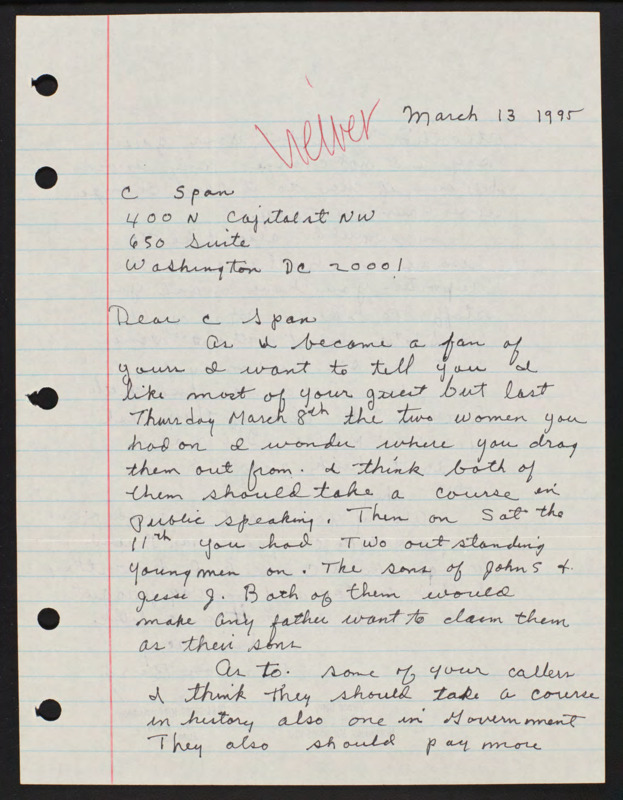 March 13 1995
viewer
C Span
400 N Capitalst NW
650 Suite
Washington DC 20001
Dear C Span
As I became a fan of
yours I want to tell you I
like most of your guest but last
Thursday March 8th the two women you
had on I wonder where you drag
them out from. I think both of
them should take a course in
public speaking. Then on Sat the
11th you had Two outstanding
young men on. The sons of John S &
Jesse J. Both of them would
make any father want to claim them
as their sons
As to. some of your callers
I think they should take a course
in history also one in Government
They also should pay more